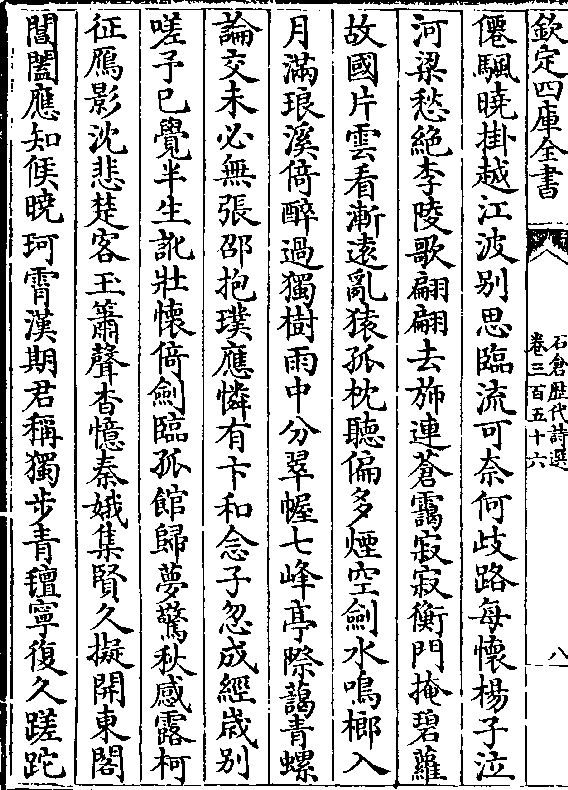 欽定四庫全書
石倉歴代詩選
卷三百五十六
八
僊颿曉掛越江波别思臨流可奈何歧路每懷楊子泣
河梁愁絶李陵歌翩翩去斾連蒼靄寂寂衡門掩碧蘿
故國片雲看漸遠亂猿孤枕聽偏多煙空劍水鳴榔入
月滿琅溪倚醉過獨樹雨中分翠幄七峰亭際藹青螺
論交未必無張邵抱璞應憐有卞和念子忽成經歳别
嗟予已覺半生訛壯懷倚劍臨孤館歸夢驚秋感露柯
征鴈影沈悲楚客玉簫聲杳憶秦娥集賢久擬開東閣
閶闔應知候曉珂霄漢期君稱獨步青氊寧復久蹉跎